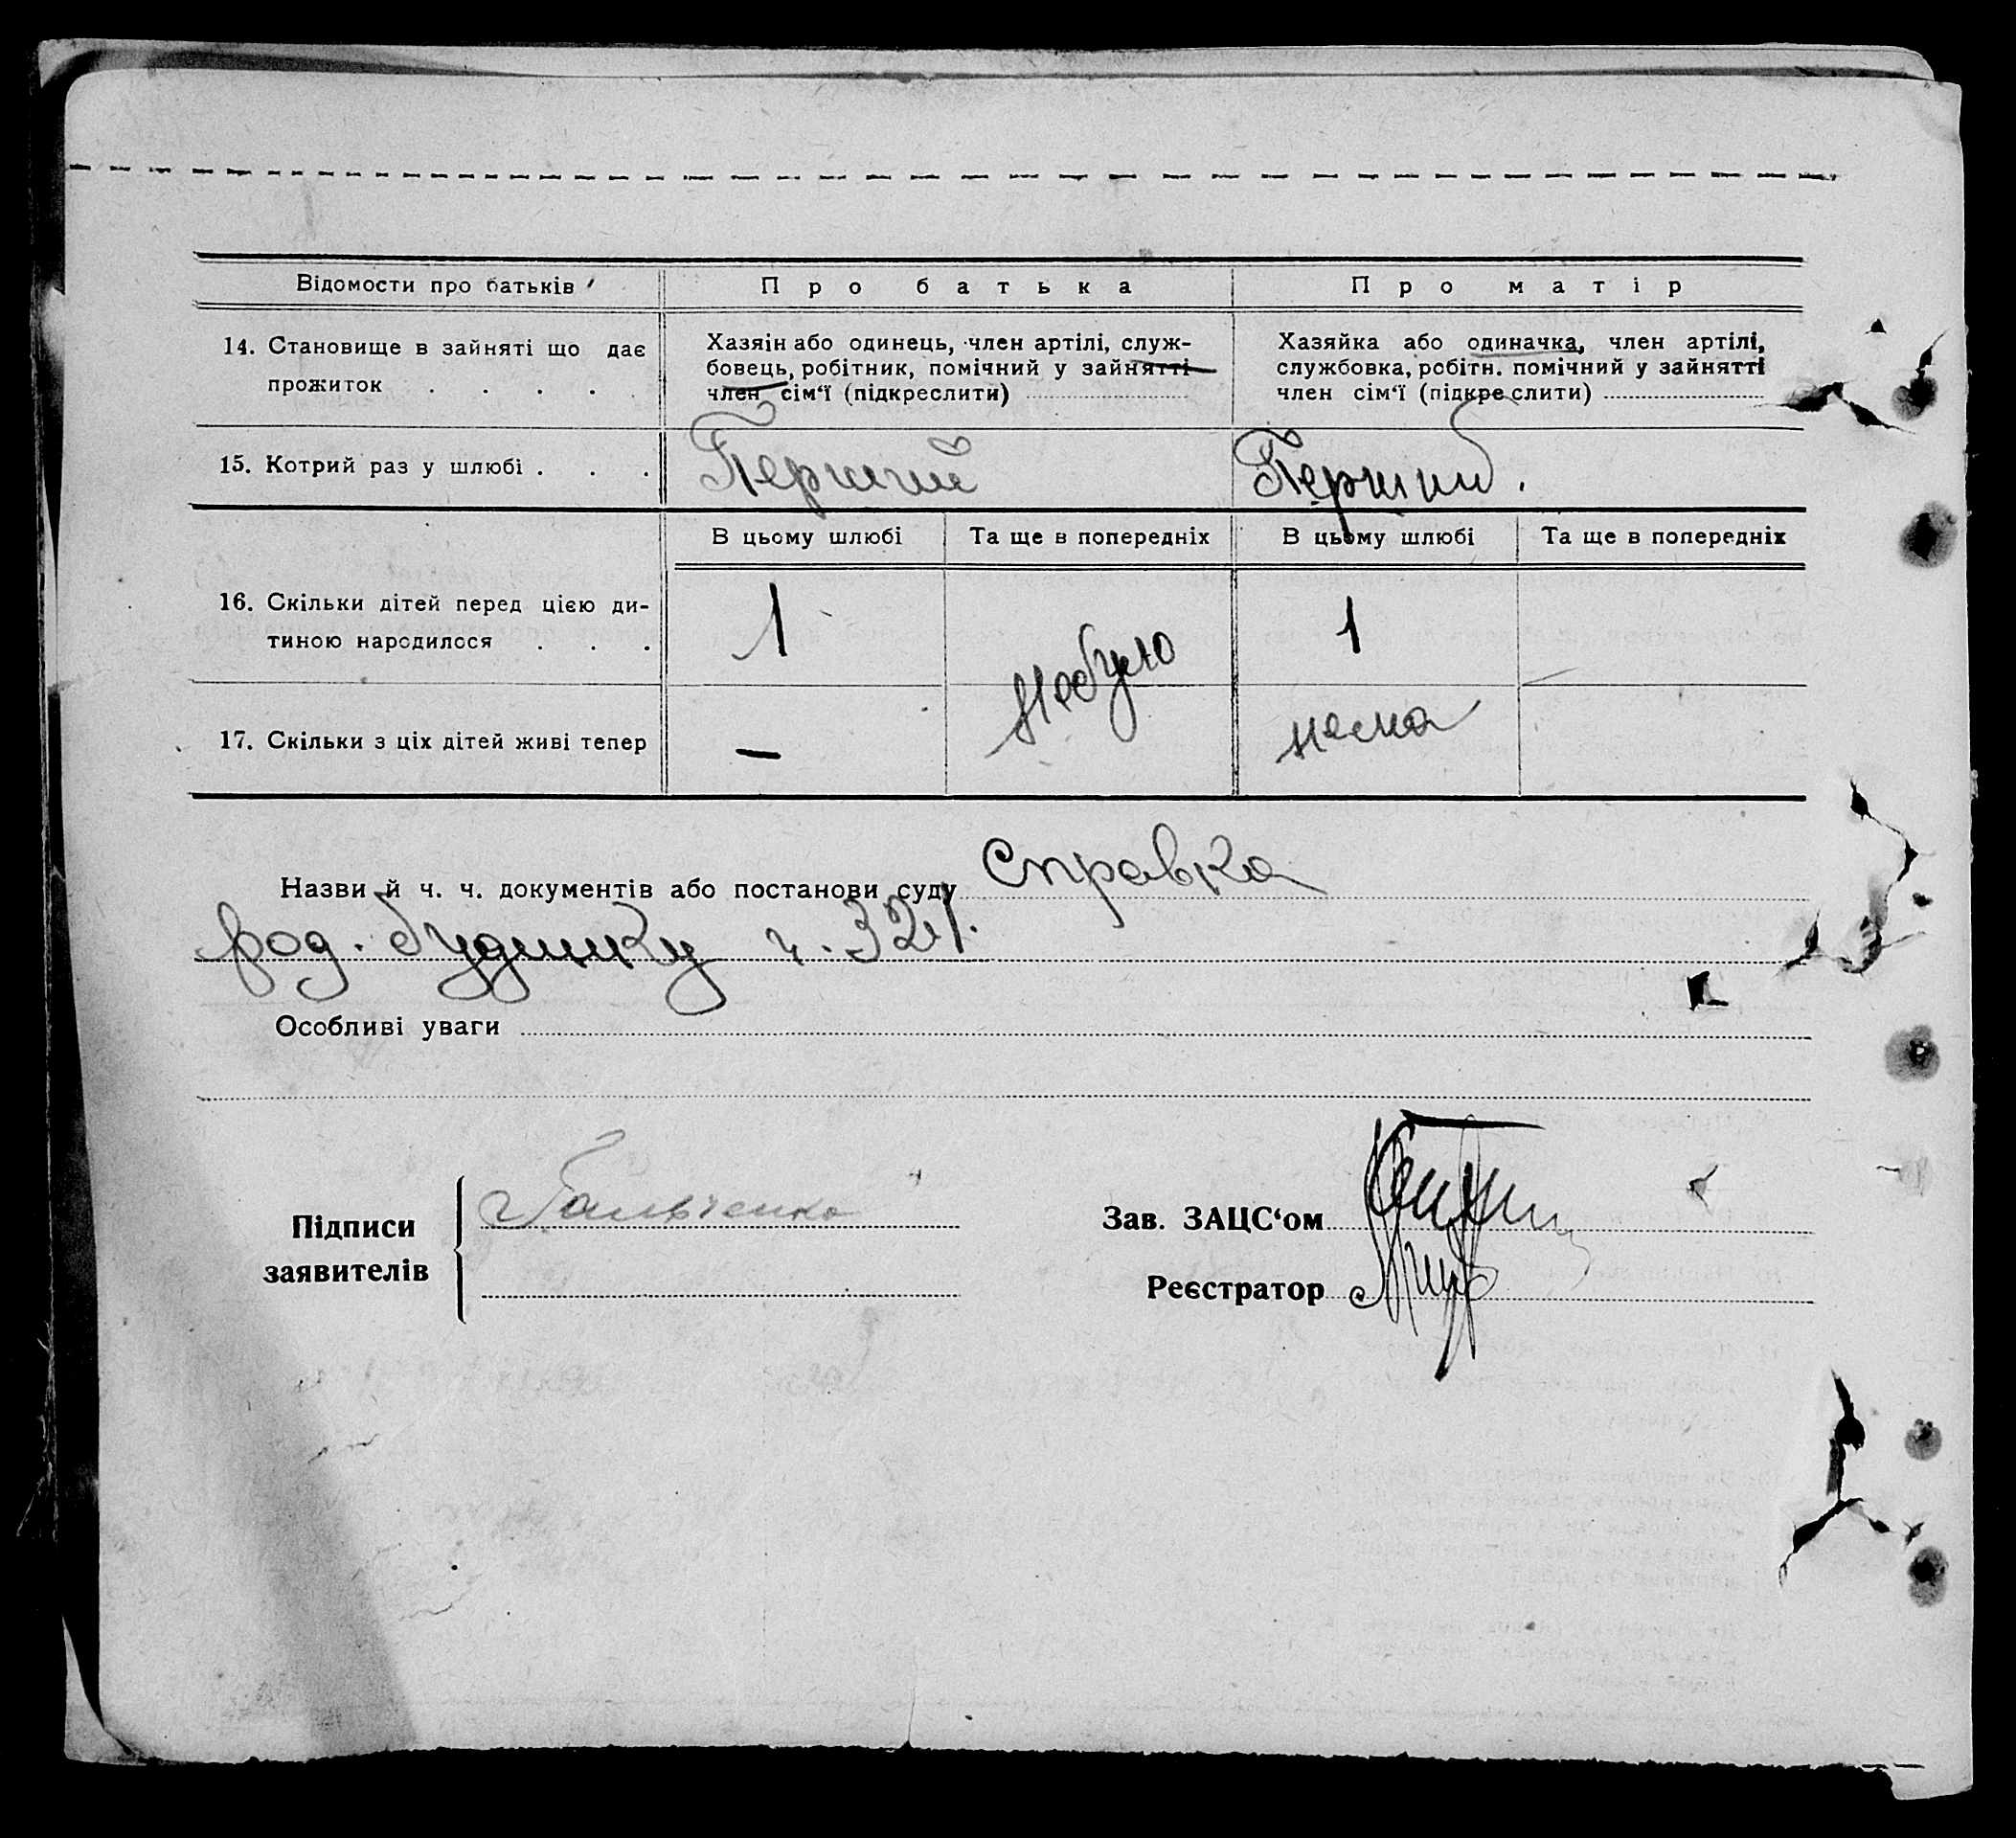 Відомости про батьків
Про батька
Про матір
14. Становище в зайняті що дає
прожиток . . . .
Хазяін або одинець, член артілі, служ-
бовець, робітник, помічний у зайнятті
член сім'ї (підкреслити)
Хазяйка або одиначка, член артілі,
службовка, робітн. помічний у зайнятті
член сім'ї (підкреслити)
15. Котрий раз у шлюбі . . .
Перший
Перший.
В цьому шлюбі
Та ще в попередніх
В цьому шлюбі
Та ще в попередніх
16. Скільки дітей перед цією ди-
тиною народилося . . .
1
Небуло
1
17. Скільки з ціх дітей живі тепер
—
нема
Назви й ч. ч. документів або постанови суду Справка
род. будинку ч.
Особливі уваги
Підписи
заявителів
Зав. ЗАЦС‘ом
Реєстратор